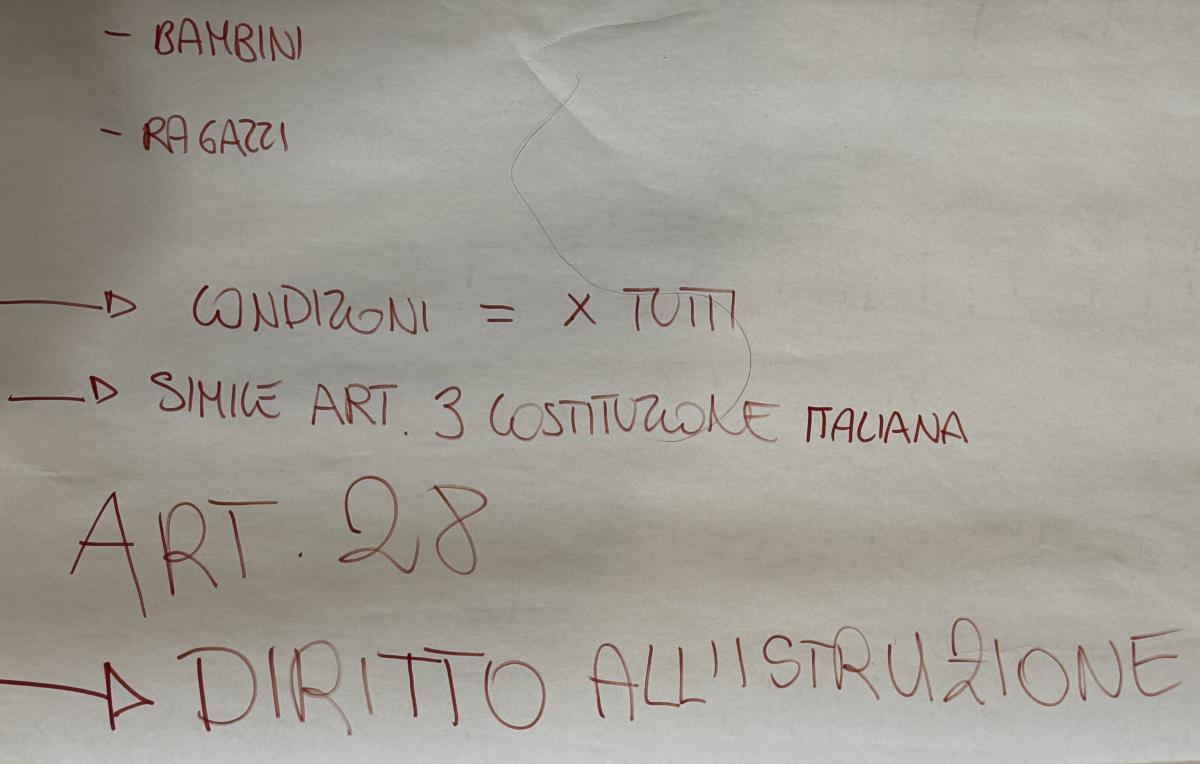 - BAMBINI
- RAGAZZI
→ CONDIZIONI = X TUTTI
→ SIMILE ART. 3 COSTITUZIONE ITALIANA
ART. 28
→ DIRITTO ALL'ISTRUZIONE